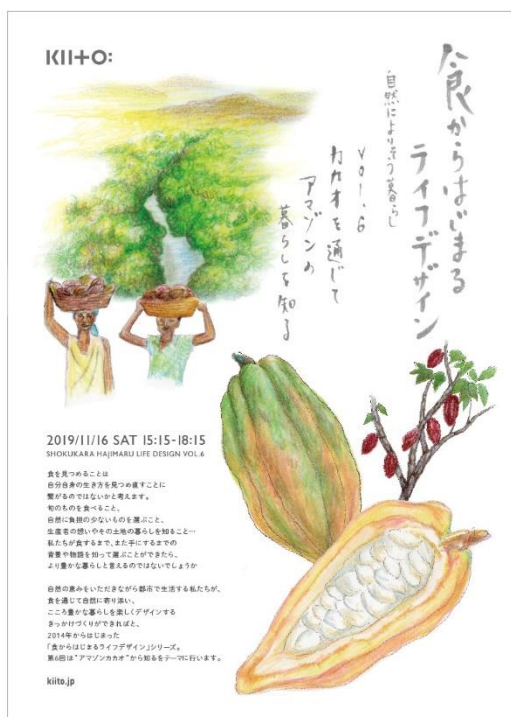 KIITO:
食からはじまる
ライフデザイン
自然によりそう暮らし
vol.6
カカオを通じて
アマゾンの
暮らしを知る
2019/11/16 SAT 15:15-18:15
SHOKUKARA HAJIMARU LIFE DESIGN VOL.6
食を見つめることは
自分自身の生き方を見つめ直すことに
繋がるのではないかと考えます。
旬のものを食べること、
自然に負担の少ないものを選ぶこと、
生産者の想いやその土地の暮らしを知ること…
私たちが食するまで、また手にするまでの
背景や物語を知って選ぶことができたら、
より豊かな暮らしと言えるのではないでしょうか
自然の恵みをいただきながら都市で生活する私たちが、
食を通じて自然に寄り添い、
こころ豊かな暮らしを楽しくデザインする
きっかけづくりができればと、
2014年からはじまった
「食からはじまるライフデザイン」シリーズ。
第6回は“アマゾンカカオ”から知るをテーマに行います。
kiito.jp